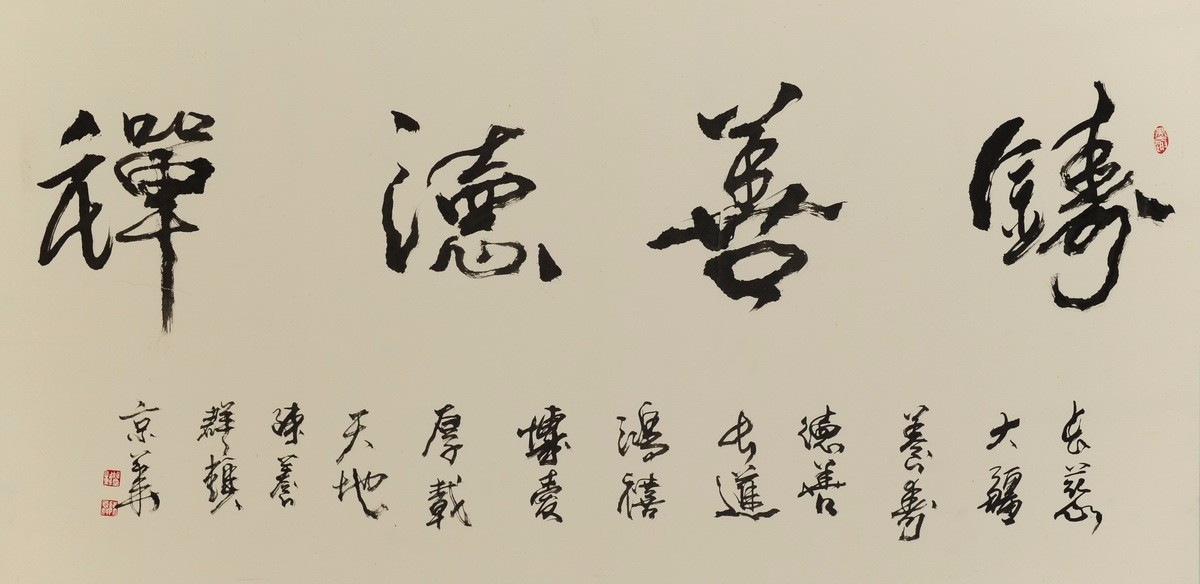 鑄善德禪
長慈
大疆
養壽
德善
長進
鴻禧
博愛
厚載
天地
陳善
群
京華